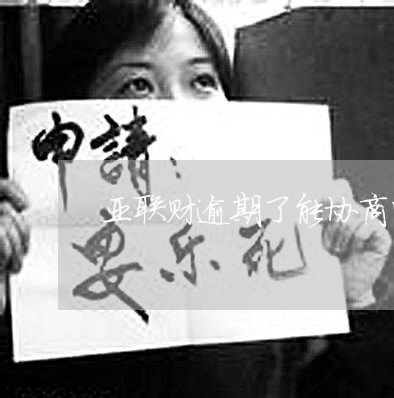 申請：
亚联财逾期了能协商
安乐死